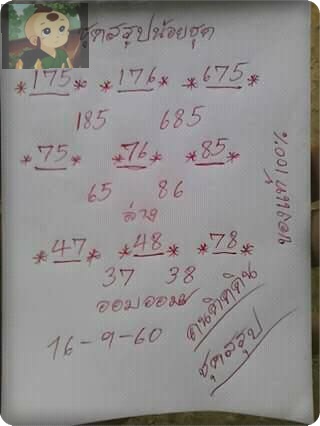 ชุดสรุปน้อยชุด
*175* *176* *675*
185 685
*75* *76* *85*
65 86
ล่าง
*47* *48* *78*
37 38
ออมออม
16-9-60
คนติดดิน
ชุดสรุป
ของแท้100%